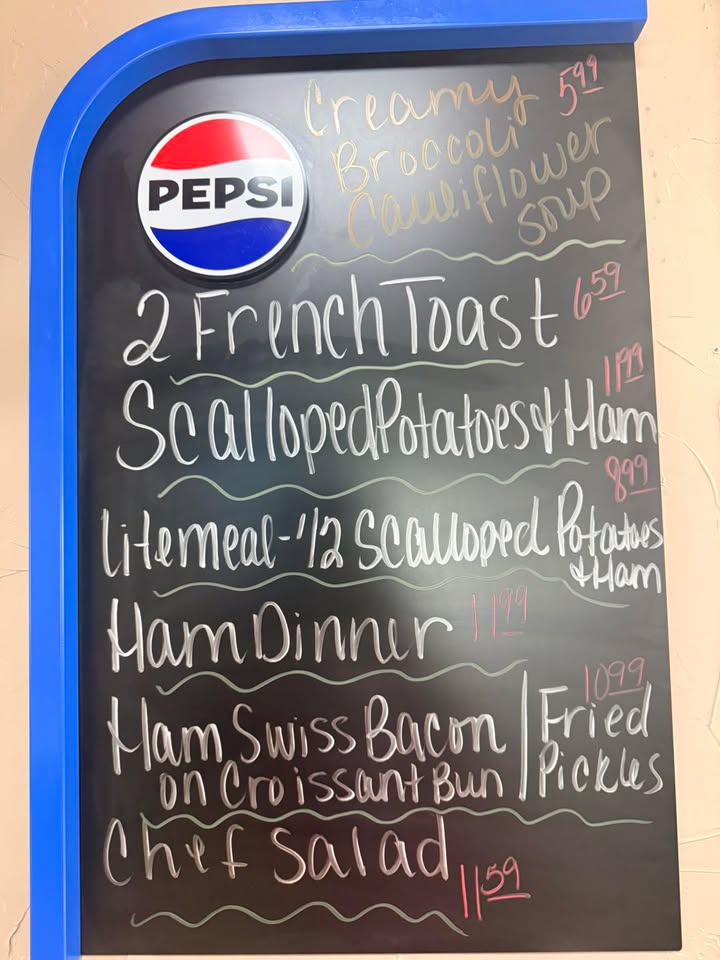 PEPSI
Creamy 5.99
Broccoli
Cauliflower
soup
2 French Toast 6.59
11.99
Scalloped Potatoes & Ham
8.99
Litemeal - 1/2 Scalloped Potatoes
& Ham
Ham Dinner 11.99
10.99
Ham Swiss Bacon | Fried
on Croissant Bun | Pickles
Chef Salad
11.59